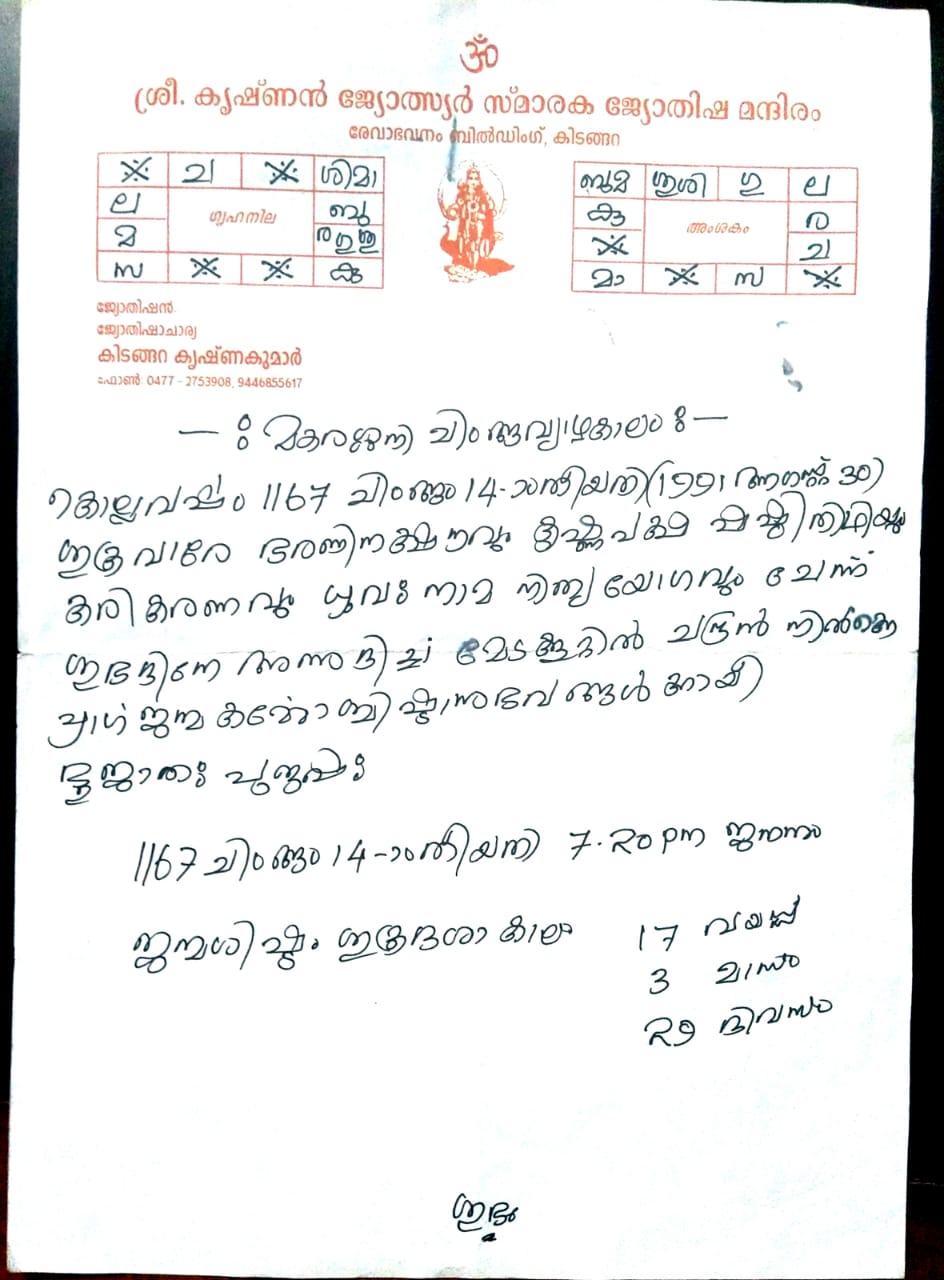 ॐ
ശ്രീ. കൃഷ്ണൻ ജ്യോത്സ്യർ സ്മാരക ജ്യോതിഷ മന്ദിരം
രേവാഭവനം ബിൽഡിംഗ്, കിടങ്ങറ
ച ശിമാ
ല ഗൃഹനില ബു
മ രഗുശു
സ കു
ബുമ ശുശി ഗു ല
കു അംശകം ര
ച
മാ സ
ജ്യോതിഷൻ
ജ്യോതിഷാചാര്യ
കിടങ്ങറ കൃഷ്ണകുമാർ
ഫോൺ: 0477 - 2753908, 9446855617
— ഃ മകരശനി ചിങ്ങവ്യാഴകാലം ഃ —
കൊല്ലവർഷം 1167 ചിങ്ങം 14-ാംതീയതി (1991 ആഗസ്റ്റ് 30)
ശുക്രവാരേ ഭരണിനക്ഷത്രവും കൃഷ്ണപക്ഷ ഷഷ്ഠിതിഥിയും
കരണവും ധ്രുവഃ നാമ നിത്യയോഗവും ചേർന്ന
ശുഭദിനേ അന്നുദിച്ച് മേടക്കൂറിൽ ചന്ദ്രൻ നിൽക്കെ
പ്രാഗ് ജന്മ
ജാതഃ പുരുഷഃ
1167 ചിങ്ങം 14-ാംതീയതി 7.20 pm ജനനം
ജന്മശിഷ്ടം ശുക്രദശാകാലം 17 വയസ്സ്
3 മാസം
29 ദിവസം
ശുഭം